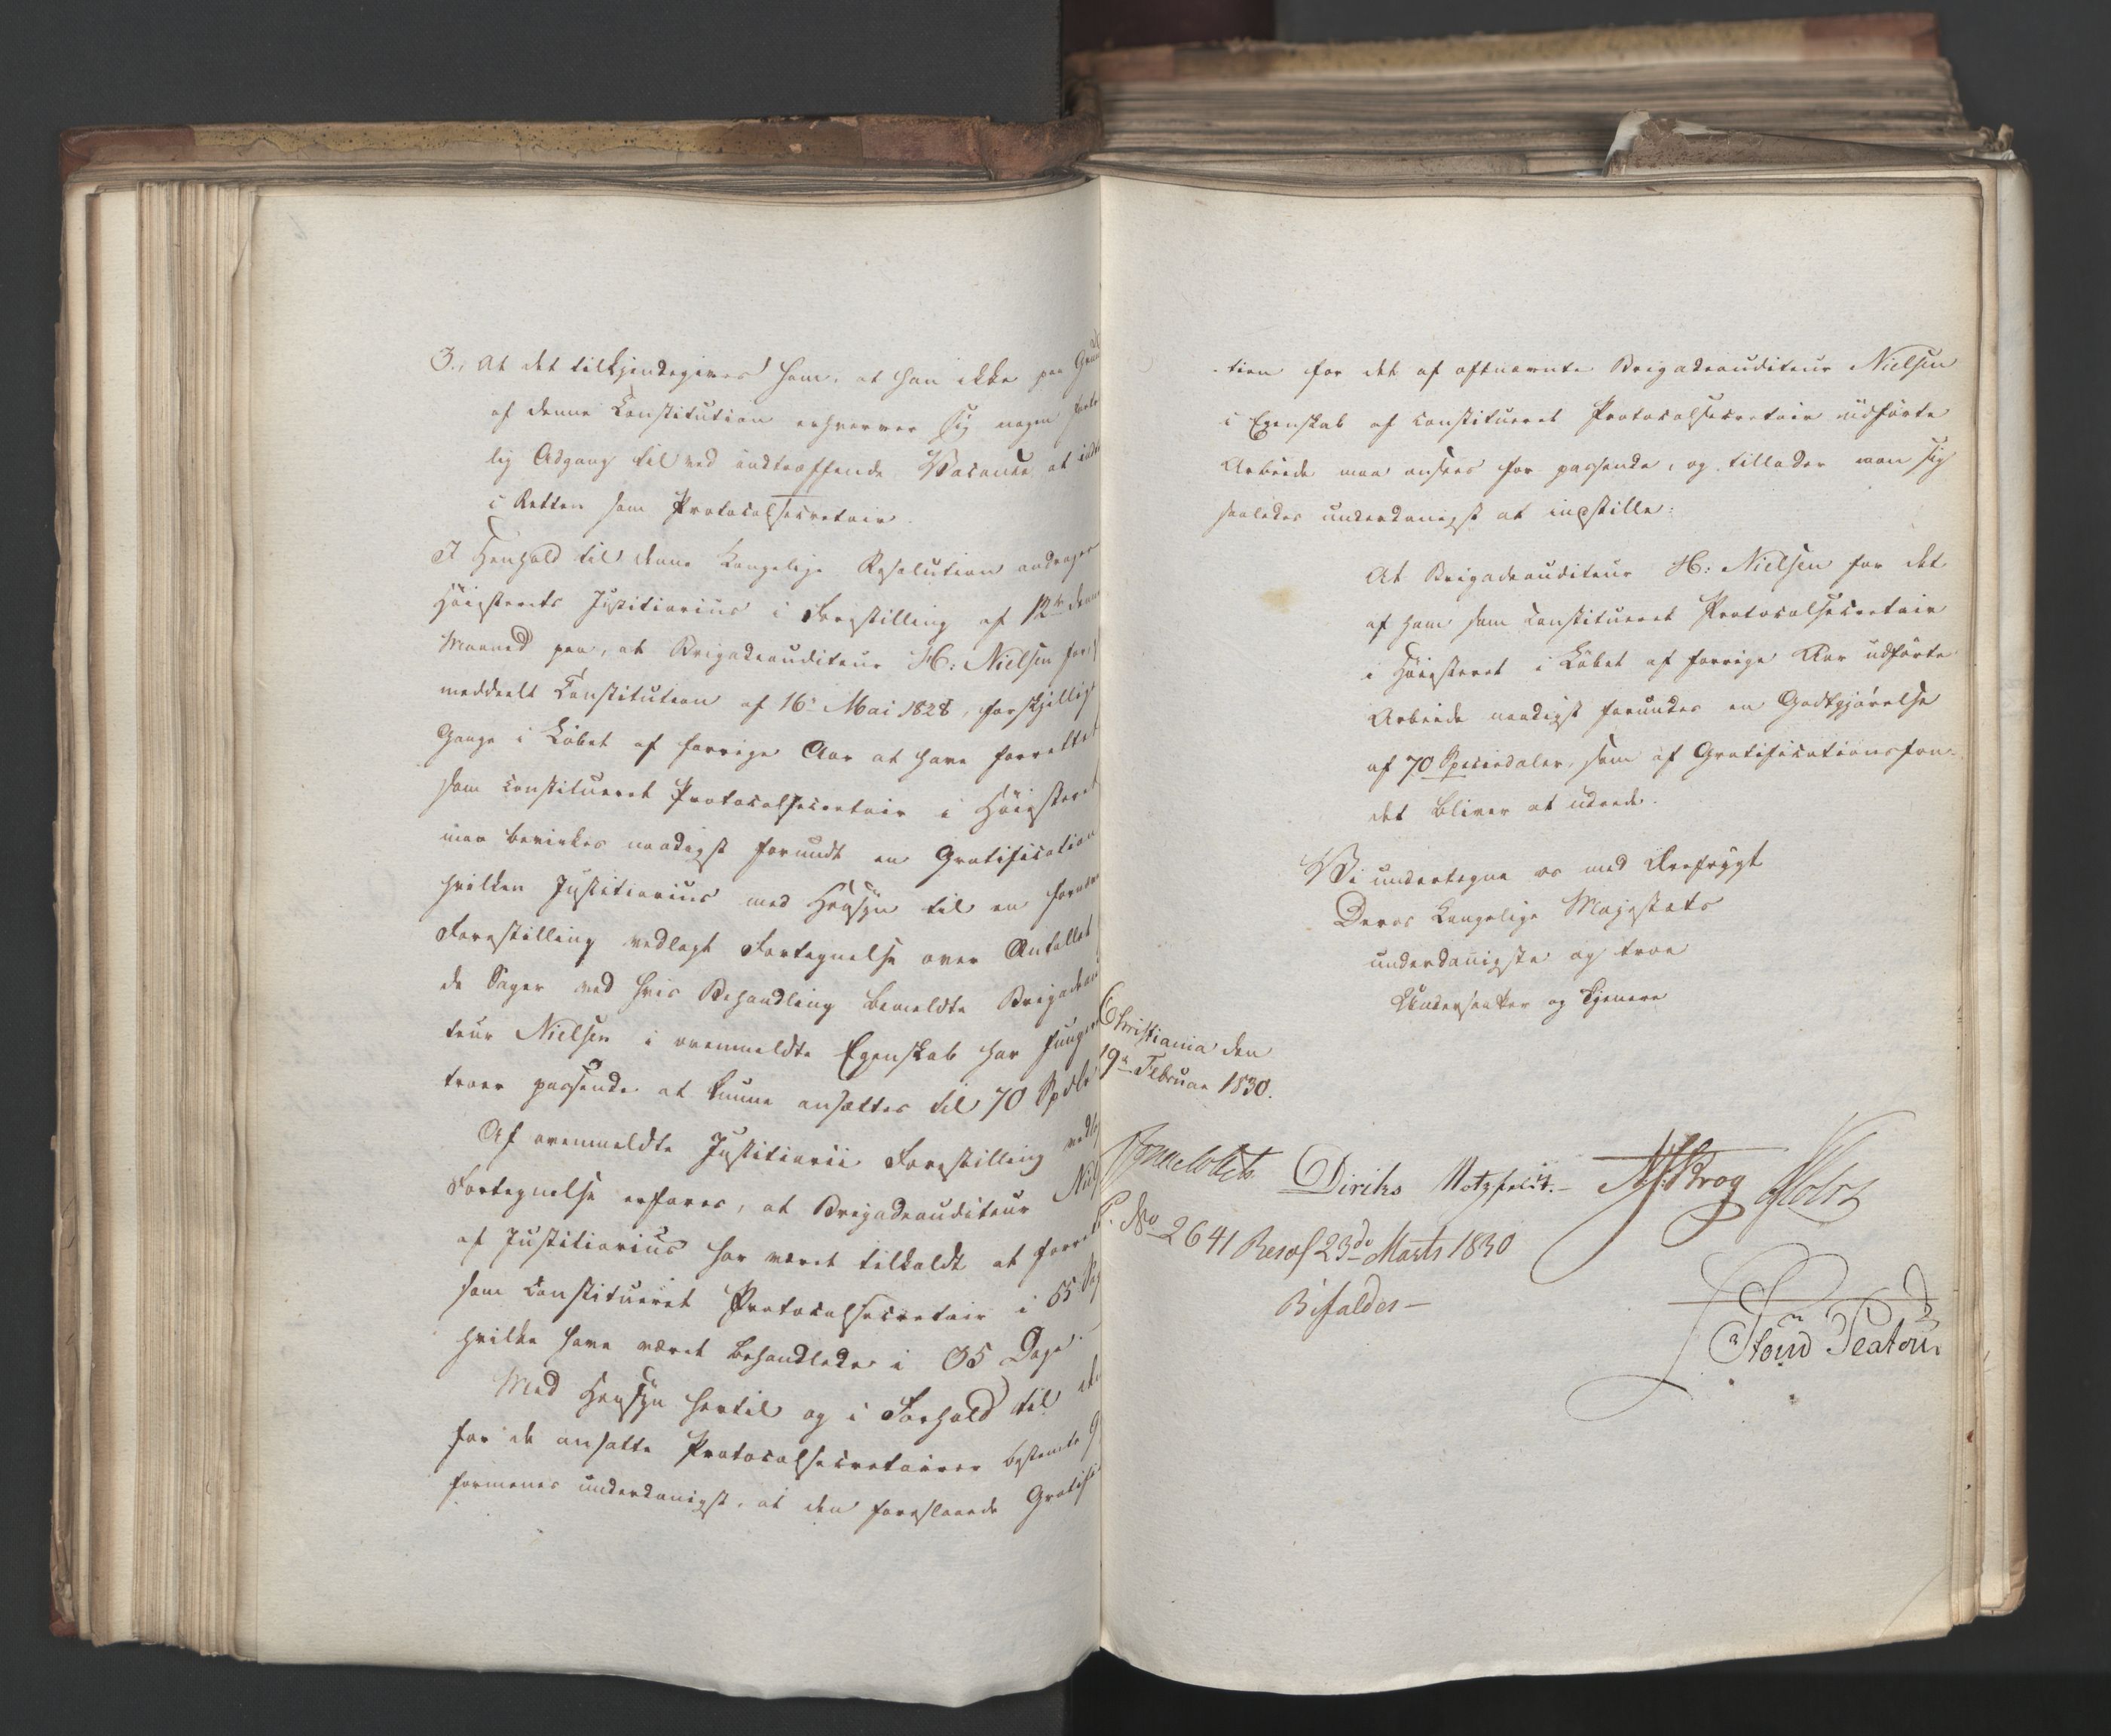 3., At det tilkjendegives ham, at han ikke paa
af denne Constitution erhverver sig nogen
lig Adgang til ved indtræffende Vacance at
i Retten som Protocolsecretair.
I Henhold til denne Kongelige Resolution andrager
Høiesterets Justitiarius i Forestilling af 12te denne
Maaned paa, at Brigadeauditeur H: Nielsen for,
meddeelt Constitution af 16de Mai 1828, forskjellige
Gange i Løbet af forrige Aar at have forrettet
som constitueret Protocolsecretair i Høiesteret
maa bevirkes naadigst forundt en Gratification
hvilken Justitiarius med Hensyn til en
Forestilling vedlagt Fortegnelse over Antallet
de Sager ved hvis Behandling bemeldte
teur Nielsen i ovenmeldte Egenskab har
troer passende at kunne ansættes til 70 Spdlr
Af ovenmeldte Justitiarii Forestilling
Fortegnelse erfares, at Brigadeauditeur
af Justitiarius har været tilkaldt at
som constitueret Protocolsecretair i 65
hvilke have været behandlede i 35 Dage.
Med Hensyn hertil og i Forhold til
for de ansatte Protocolsecretairer bestemte
formenes underdanigst, at den foreslaaede
tion for det af oftnævnte Brigadeauditeur Nielsen
i Egenskab af constitueret Protocolsecretair udførte
Arbeide maa ansees for passende, og tillader man sig
saaledes underdanigst at indstille:
At Brigadeauditeur H: Nielsen for det
af ham som constitueret Protocolsecretair
i Høiesteret i Løbet af forrige Aar udførte
Arbeide naadigst forundes en Godtgjørelse
af 70 Speciedaler, som af Gratificationsfon-
det bliver at udrede.
Vi undertegne os med Ærefrygt
Deres Kongelige Majestæts
underdanigste og troe
Undersaatter og tjenere
Christiania den
19de Februar 1830.
Diriks Motzfeldt. Krog Holst
No 2641 Resol 23de Marts 1830
Bifaldes—